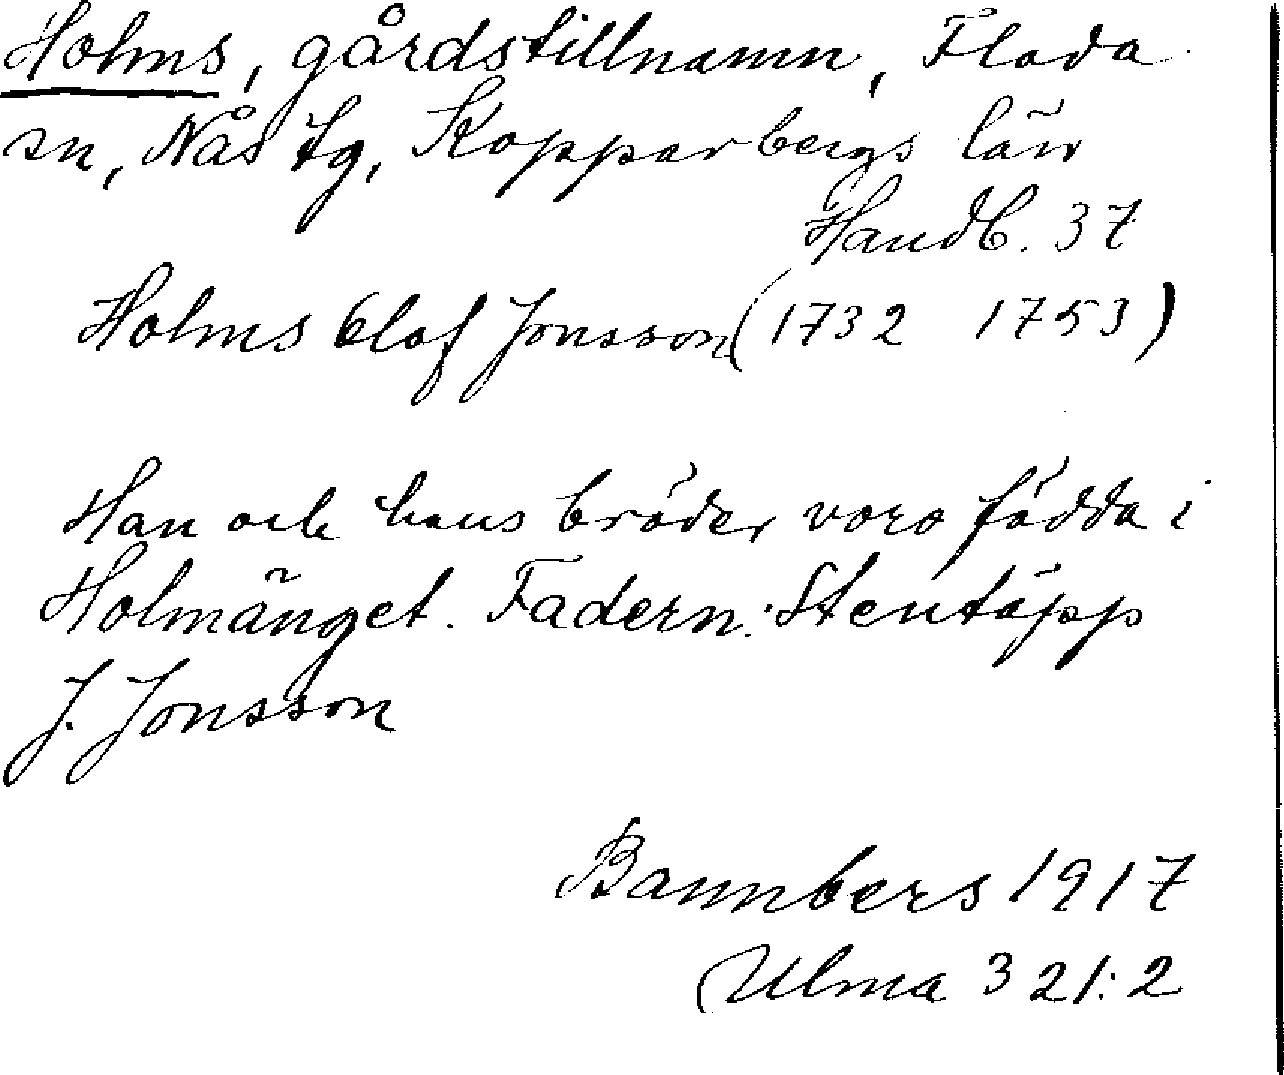 Holms, gårdstillnamn, Floda
sn, Nås tg, Kopparbergs län
Handb. 37
Holms Olof Jonsson (1732 1753)
Han och hans bröder voro födda i
Holmänget. Fadern: Stentäpp
J. Jonsson
Bannbers 1917
Ulma 321:2